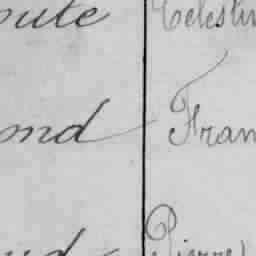 oute Célestin
ond Fran
nd Pierre